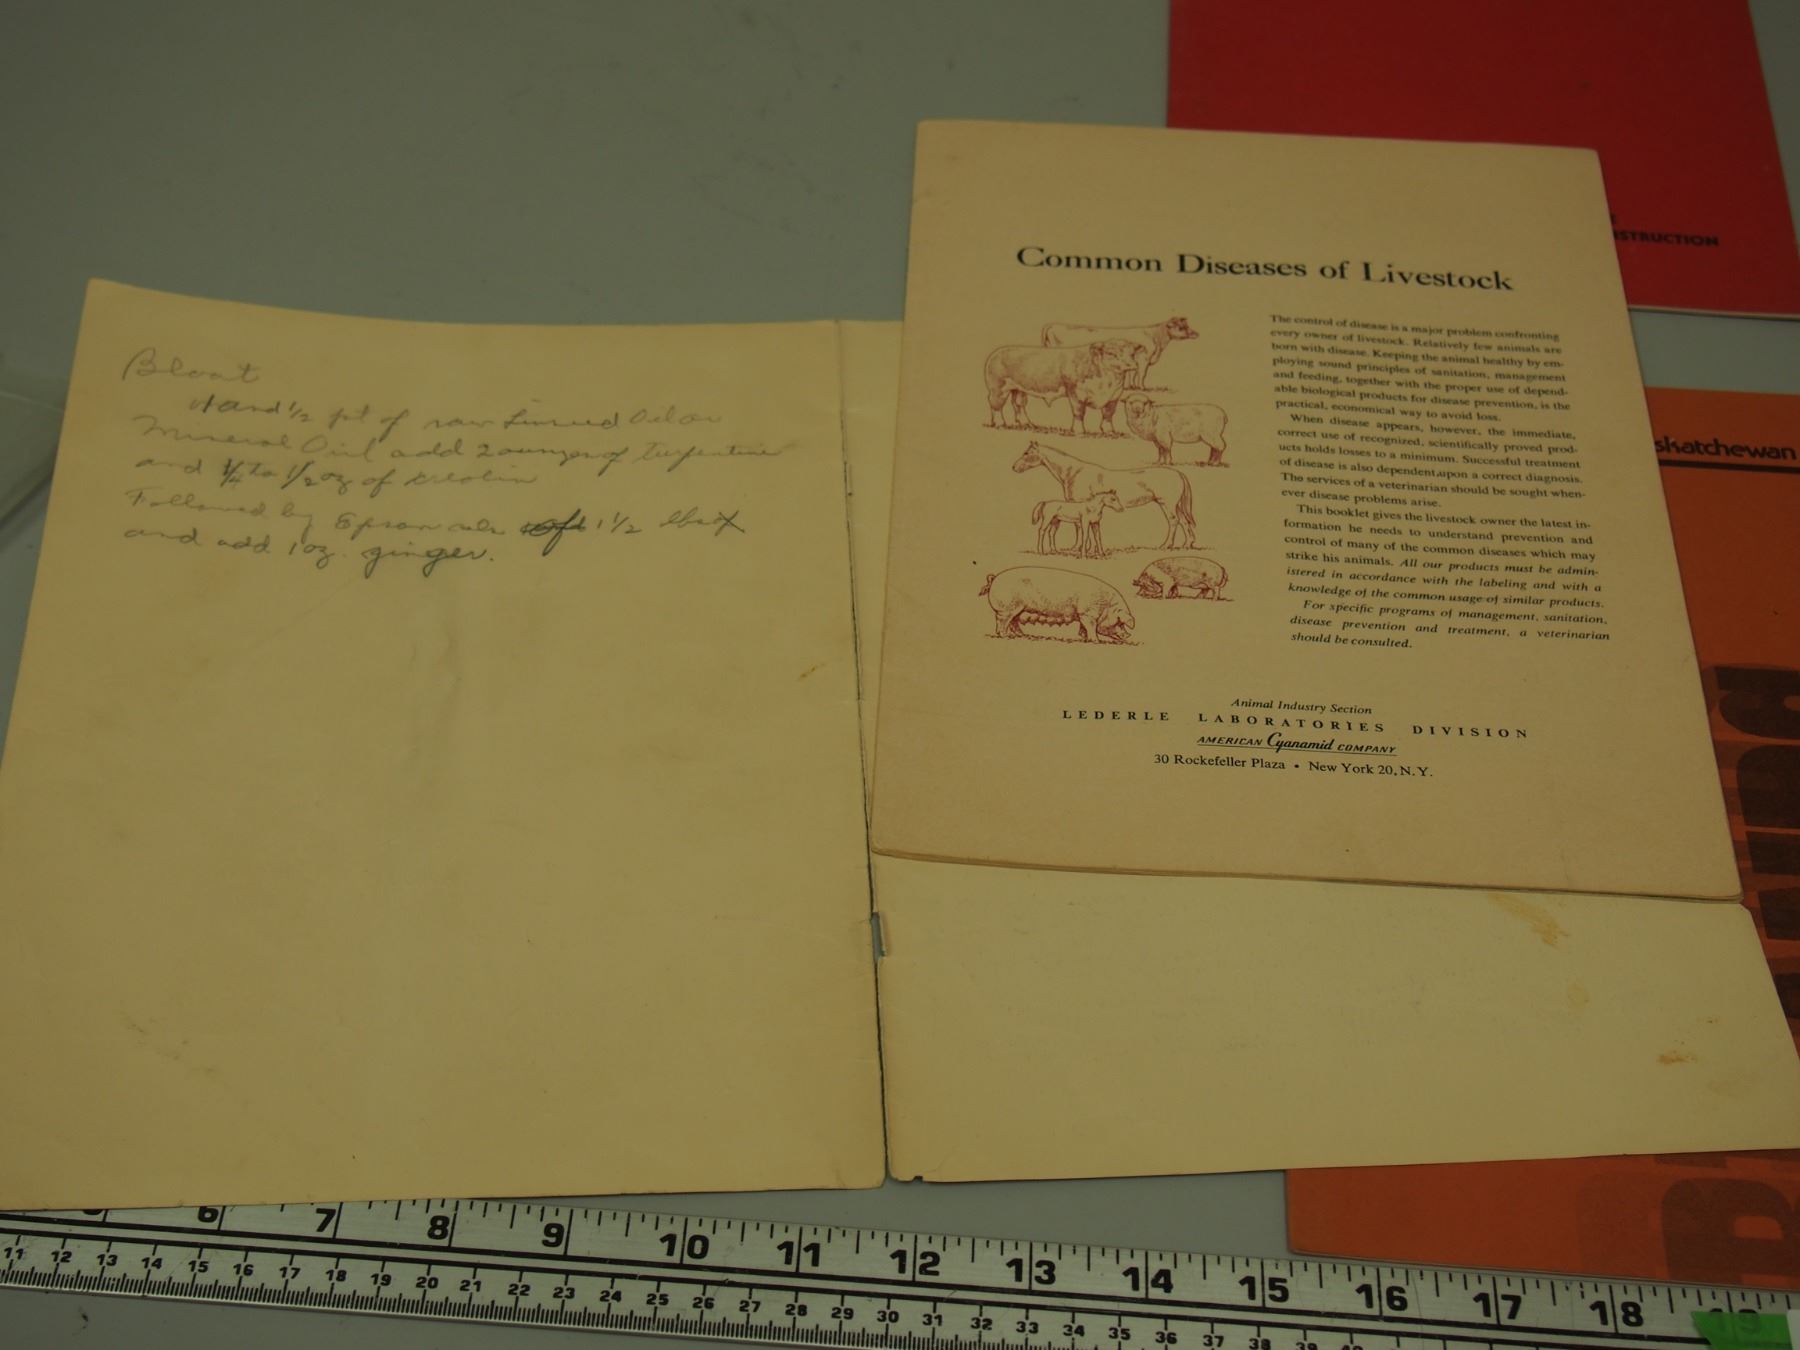 Bloat
1 and 1/2 pt of raw Linseed Oil or
Mineral Oil add 2 ounzes of turpentine
and 1/4 to 1/2 oz of creolin
Followed by Epsom 1 1/2 lbs
and add 1 oz. ginger.
Common Diseases of Livestock
The control of disease is a major problem confronting
every owner of livestock. Relatively few animals are
born with disease. Keeping the animal healthy by em-
ploying sound principles of sanitation, management
and feeding, together with the proper use of depend-
able biological products for disease prevention, is the
practical, economical way to avoid loss.
When disease appears, however, the immediate,
correct use of recognized, scientifically proved prod-
ucts holds losses to a minimum. Successful treatment
of disease is also dependent upon a correct diagnosis.
The services of a veterinarian should be sought when-
ever disease problems arise.
This booklet gives the livestock owner the latest in-
formation he needs to understand prevention and
control of many of the common diseases which may
strike his animals. All our products must be admin-
istered in accordance with the labeling and with a
knowledge of the common usage of similar products.
For specific programs of management, sanitation,
disease prevention and treatment, a veterinarian
should be consulted.
Animal Industry Section
LEDERLE LABORATORIES DIVISION
AMERICAN Cyanamid COMPANY
30 Rockefeller Plaza • New York 20, N.Y.
STRUCTION
skatchewan
6 7 8 9 10 11 12 13 14 15 16 17 18 19
11 12 13 14 15 16 17 18 19 20 21 22 23 24 25 26 27 28 29 30 31 32 33 34 35 36 37 38 39